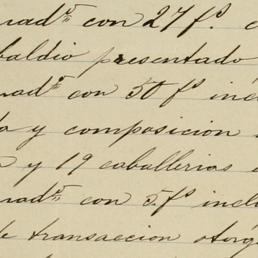 uad.ⁿ con 27 f.ˢ
baldio presentado
uad.ⁿ con 50 f.ˢ incl
a y composicion
y 19 caballerias
uad.ⁿ con 5. f.ˢ inclu
de transaccion otorg